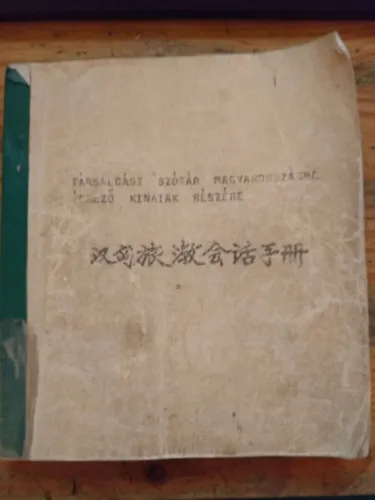 TÁRSALGÁSI SZÓTÁR MAGYARORSZÁGRA
ÉRKEZŐ KINAIAK RÉSZÉRE
汉匈旅游会话手册